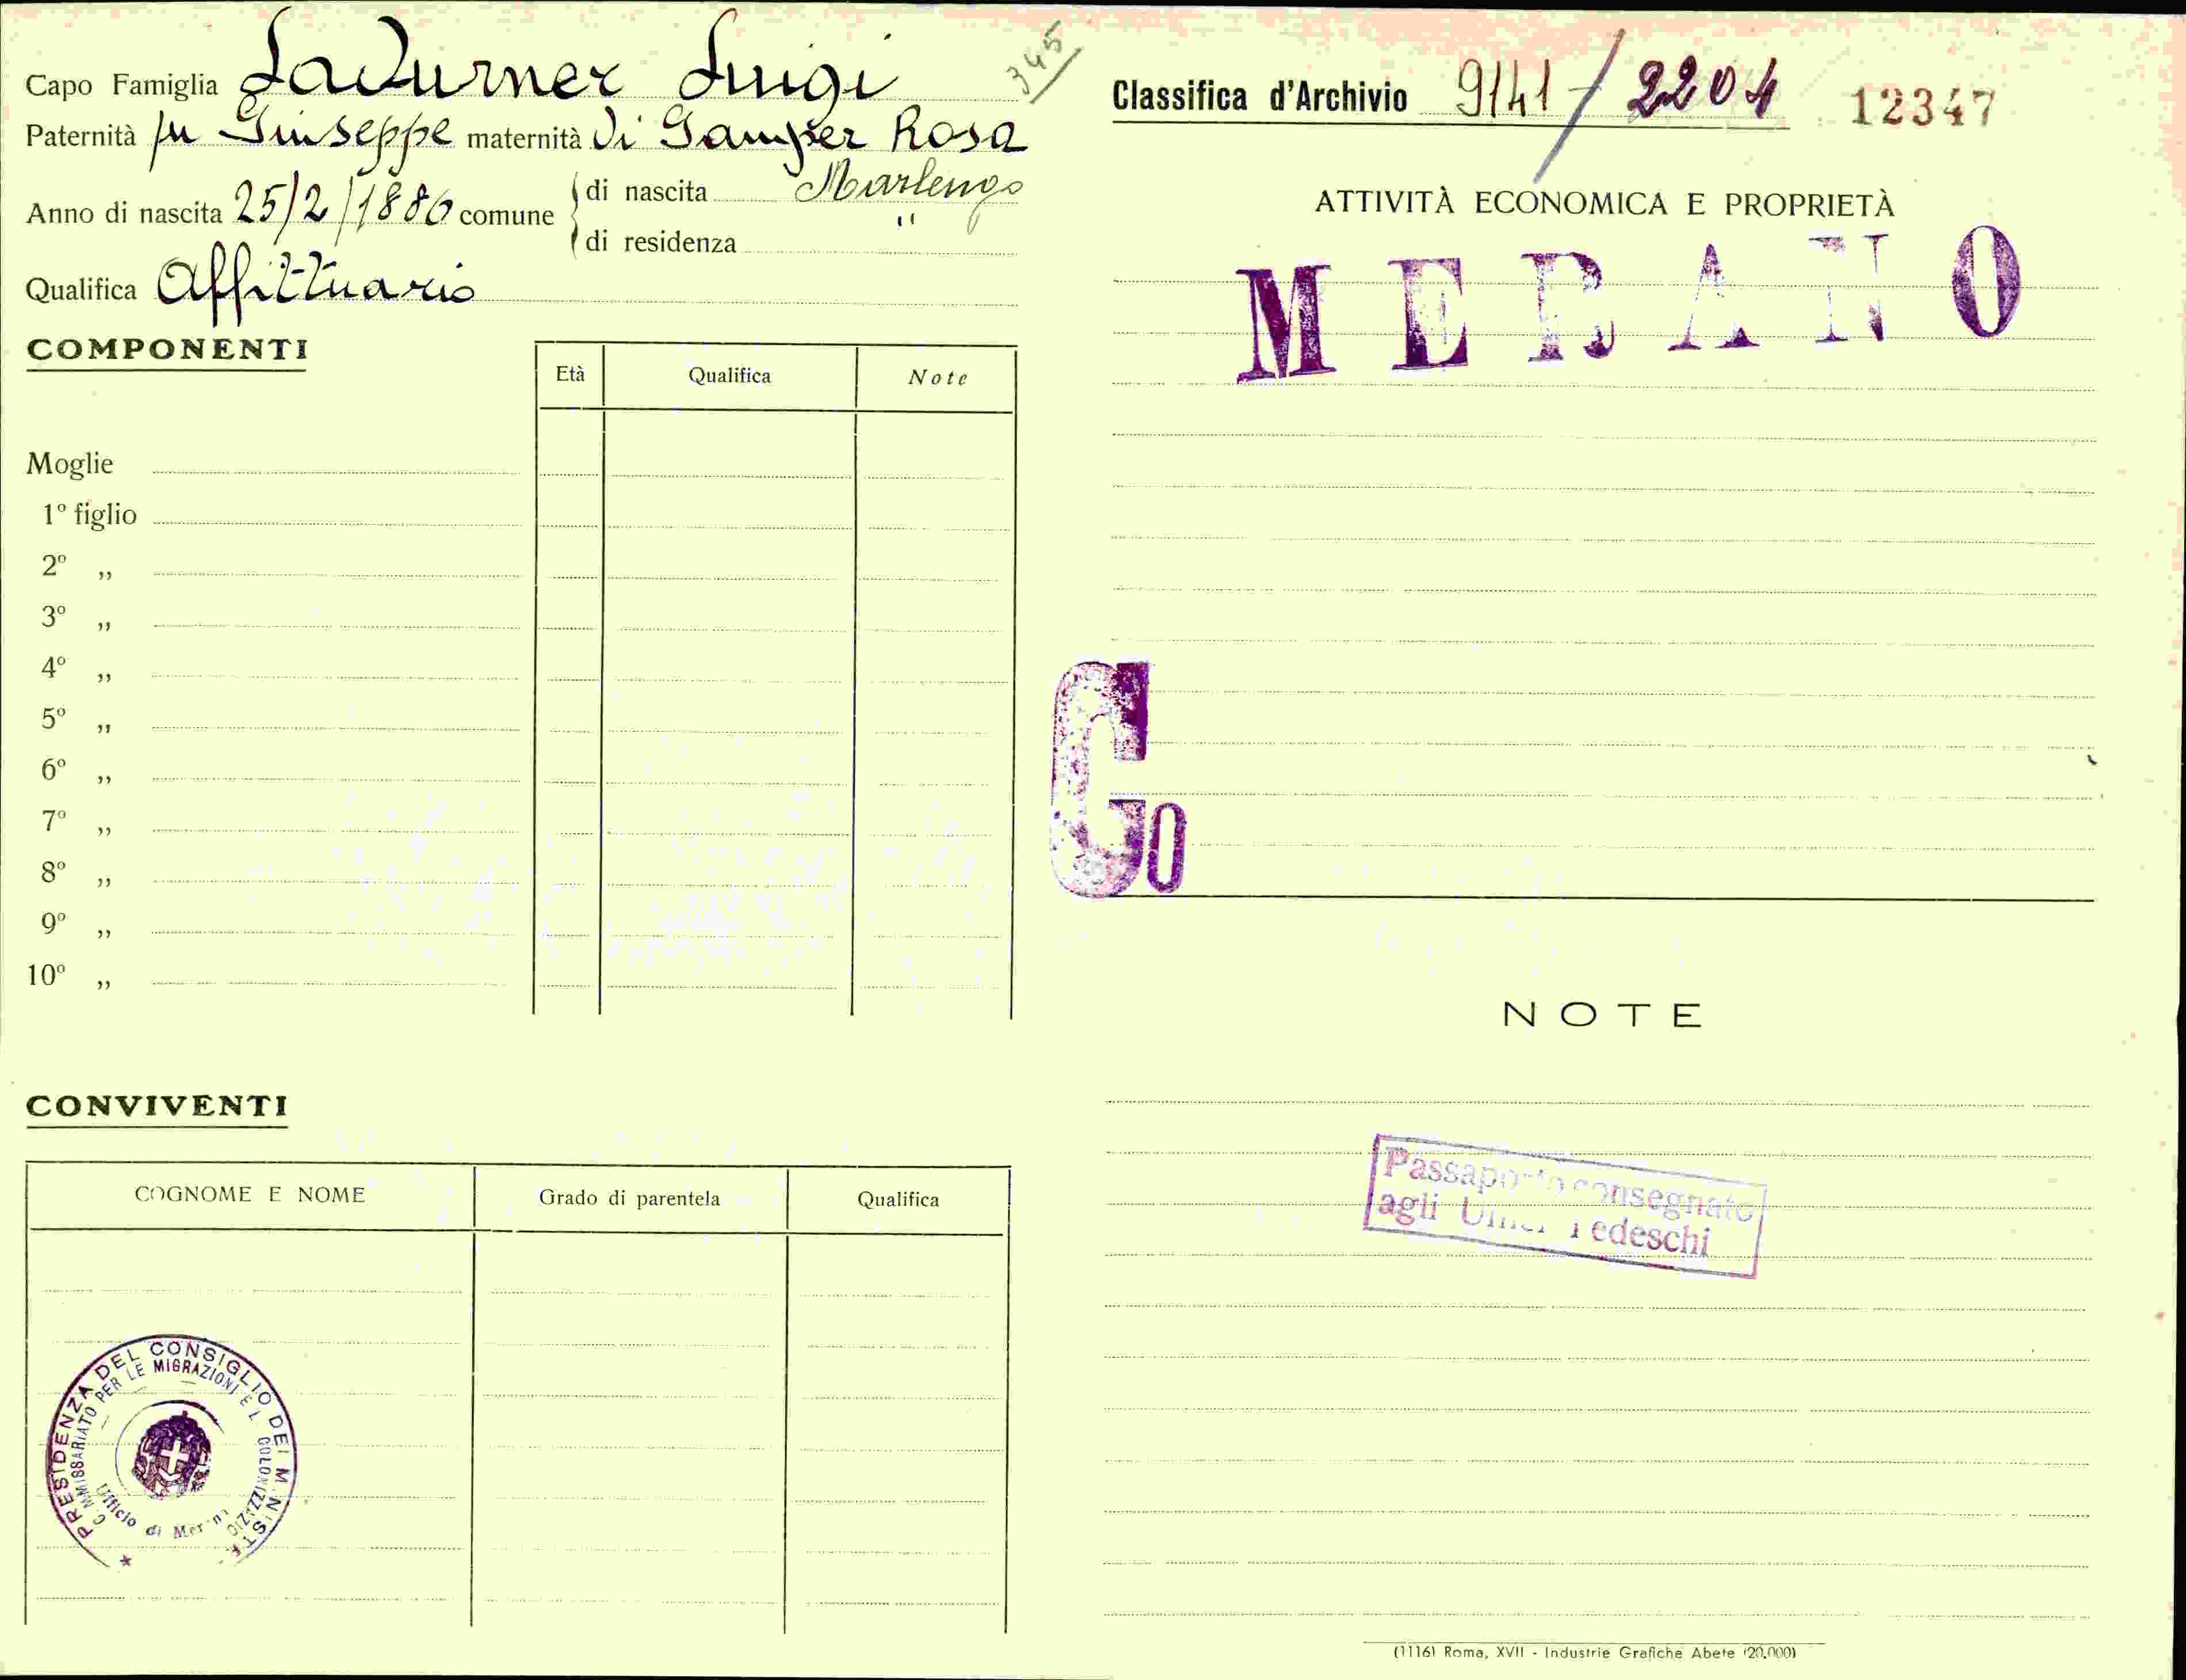 Capo Famiglia Ladurner Luigi
345
Paternità fu Giuseppe maternità di Gamper Rosa
Anno di nascita 25/2/1886 comune
di nascita Marlengo
di residenza "
Qualifica Affittuario
COMPONENTI
Età Qualifica Note
Moglie
1º figlio
2º „
3º „
4º „
5º „
6º „
7º „
8º „
9º „
10º „
CONVIVENTI
COGNOME E NOME Grado di parentela Qualifica
PRESIDENZA DEL CONSIGLIO DEI MINISTR
COMMISSARIATO PER LE MIGRAZIONI E L COLONIZZAZIO
Ufficio di Merano
Classifica d'Archivio 9141/2204 12347
ATTIVITÀ ECONOMICA E PROPRIETÀ
MERANO
Go
NOTE
Passaporto consegnato
agli Uffici Tedeschi
(1116) Roma, XVII - Industrie Grafiche Abete (20.000)